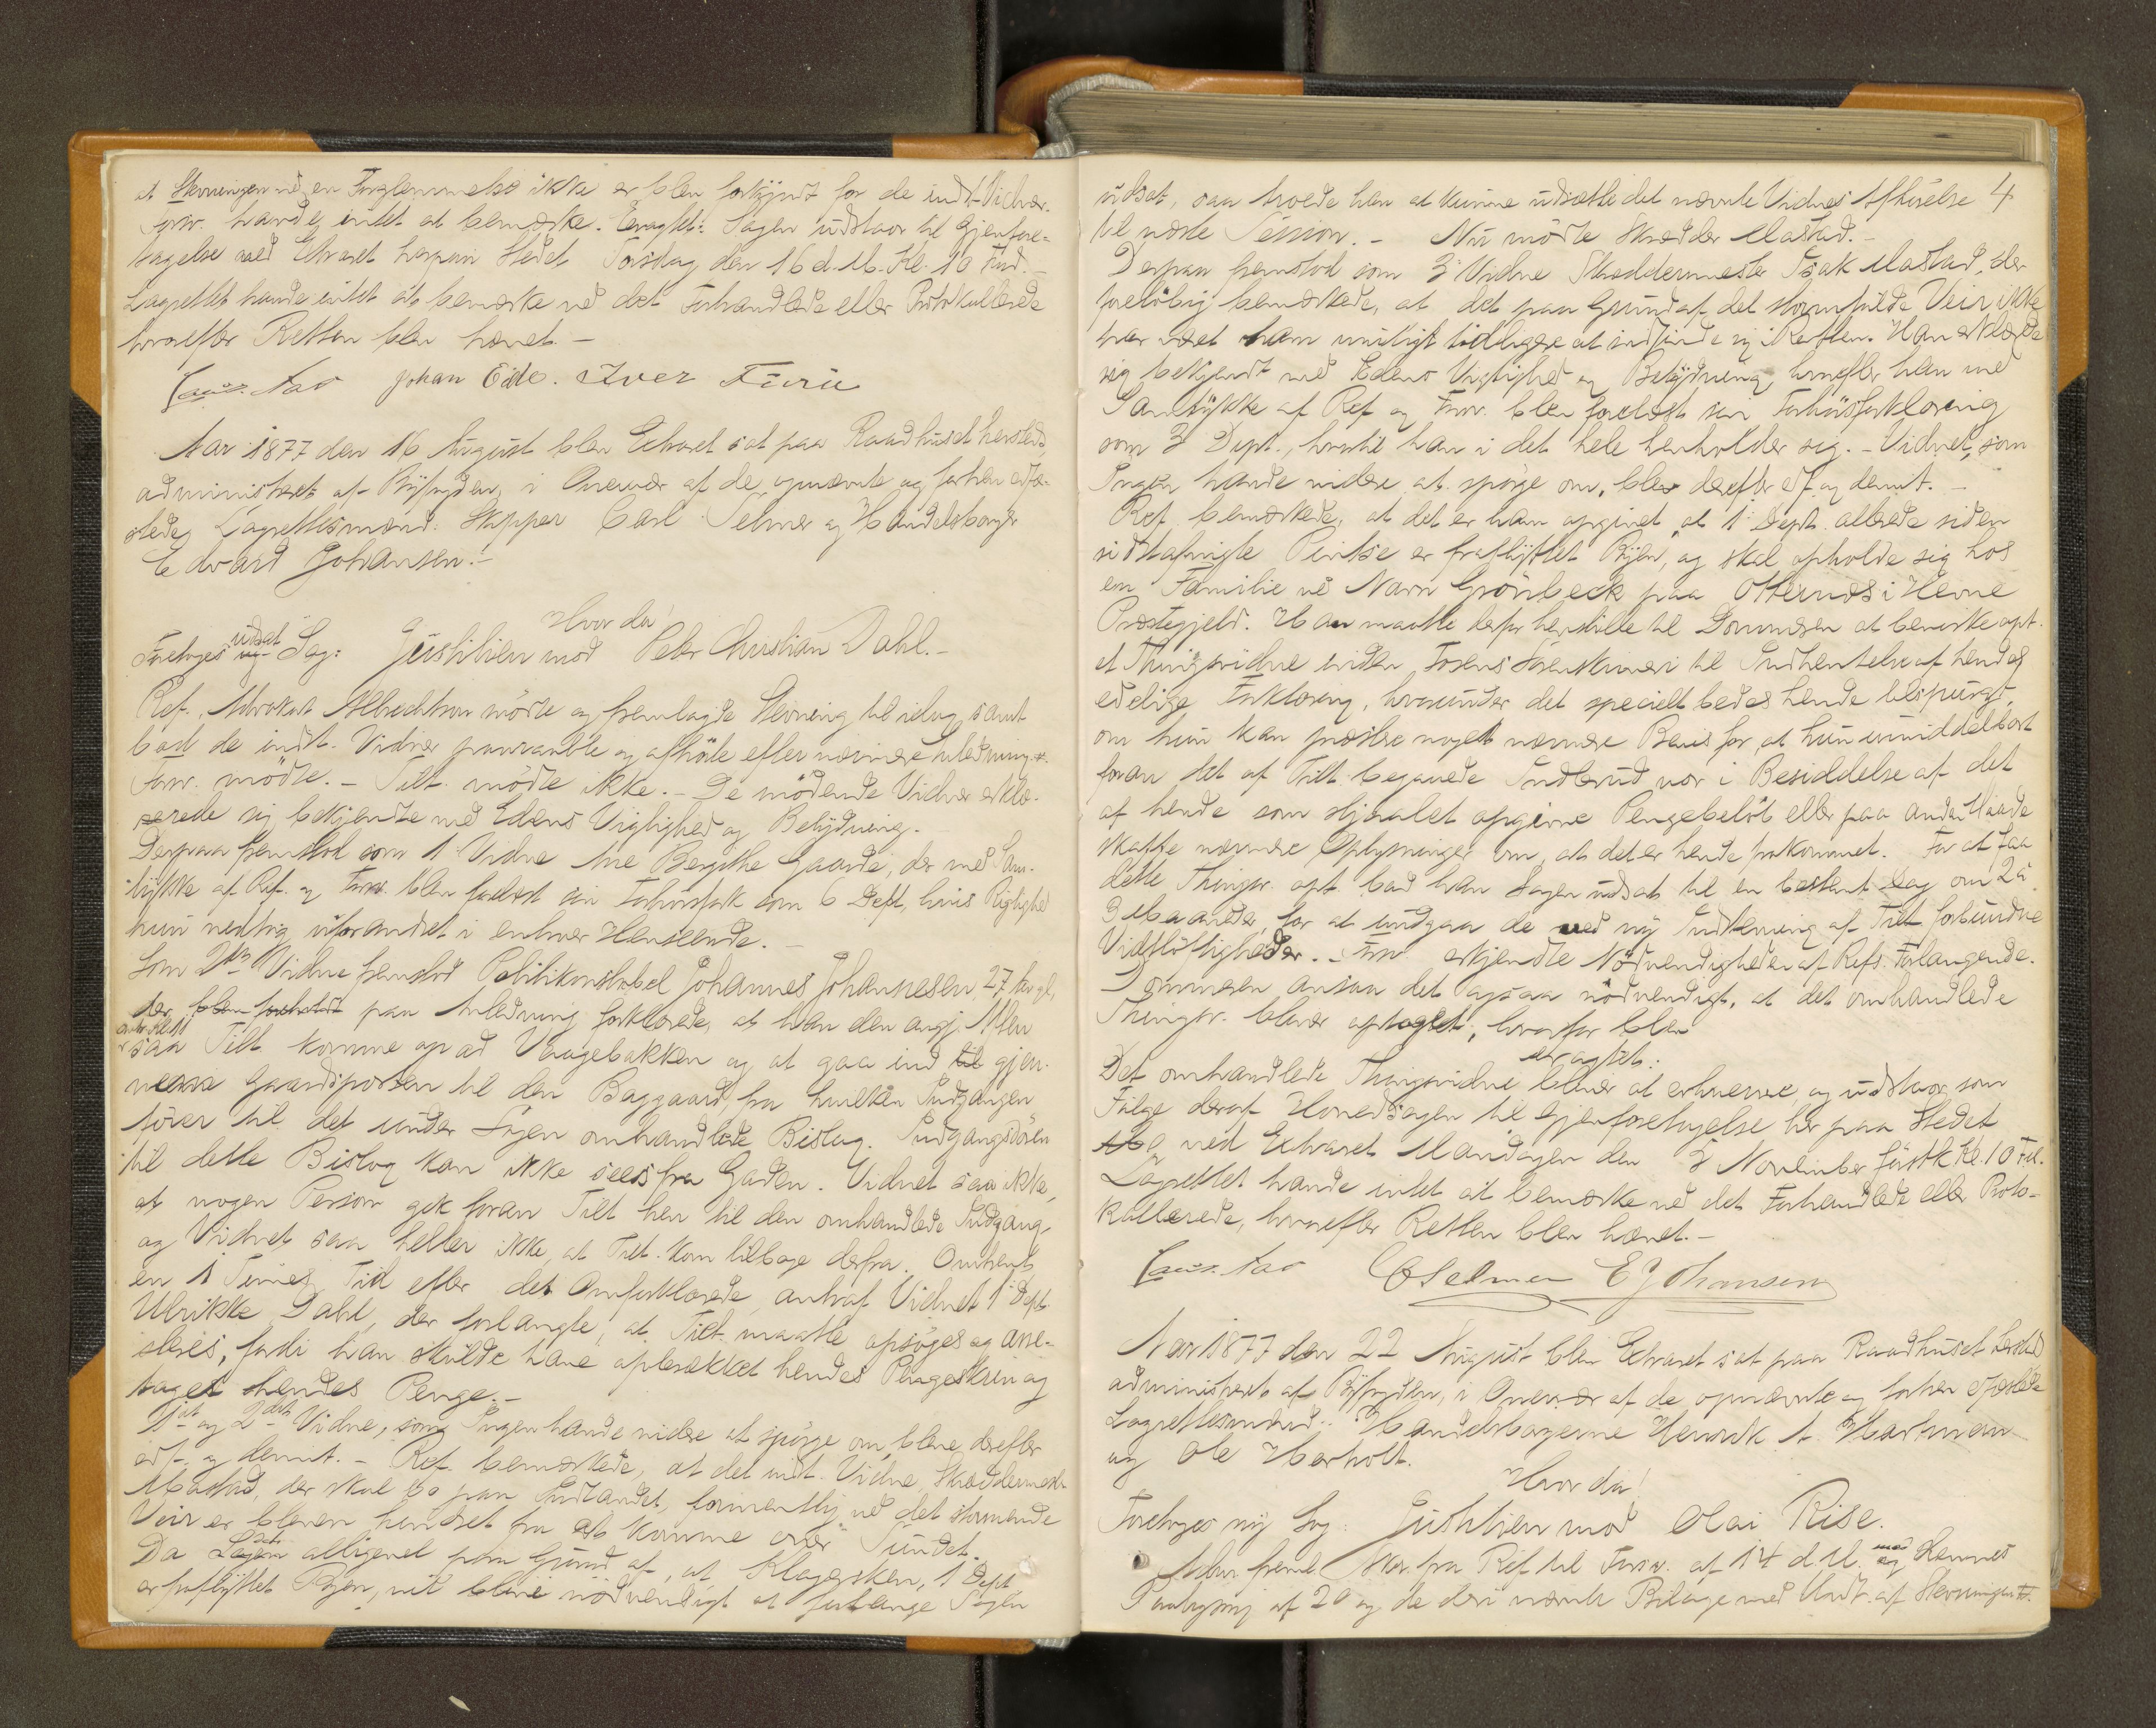 at Stevningen ved en Forglemmelse ikke er bleven forkyndt for de indst. Vidner.
Forsv. havde intet at bemærke. Eragtet: Sagen udstaar til Gjenfore-
tagelse ved Extraret herpaa Stedet Torsdag den 16 d. M. Kl. 10 Fmd.
Lagrettet havde intet at bemærke ved det Forhandlede eller Protokollerede
hvorefter Retten blev hævet. -
Johan Eide. Iver Furu
Aar 1877 den 16 August blev Extraret sat paa Raadhuset hersteds,
administreret af Byfogden, i Overvær af de opnævnte og forhen edfæ-
stede Lagrettesmænd: Skipper Carl Selmer og Handelsborger
Edvard Johansen. -
Hvor da!
Foretoges udsat Sag: Justitien mod Peter Christian Dahl. -
Ref., Advokat Albrechtson mødte og fremlagde Stevning til idag samt
bad de indst. Vidner paaraabte og afhørte efter nærmere Anledning.
Forsv. mødte. - Tilt. mødte ikke. - De mødende Vidner erklæ-
rede sig bekjendte med Edens Vigtighed og Betydning.
Derpaa fremstod som 1 Vidne Ane Bergithe Gaarde, der med Sam-
tykke af Ref. og Forsv. blev forelæst sin Forhørsfork. som 6 Dept, hvis Rigtighed
hun vedtog uforandret i enhver Henseende. -
Som 2det Vidne fremstod Politikonstabel Johannes Johannesen, 27 Aar gl.,
der blev foreholdt paa Anledning forklarede, at han den angj. Aften
saa Tilt. komme op ad Vaagebakken og at gaa ind til gjen-
nem Gaardsporten til den Baggaard, fra hvilken Indgangen
fører til det under Sagen omhandlede Bislag. Indgangsdøren
til dette Bislag kan ikke sees fra Gaden. Vidnet saa ikke,
at nogen Person gik foran Tilt hen til den omhandlede Indgang,
og Vidnet saa heller ikke, at Tilt. kom tilbage derfra. Omtrent
en 1 Times Tid efter det Omforklarede antraf Vidnet 1 Dept.
Ulrikke Dahl, der forlangte, at Tilt. maatte opsøges og arre-
steres, fordi han skulde have opbrækket hendes Pengeskrin og
taget hendes Penge. -
1ste og 2det Vidne, som Ingen havde videre at spørge om, bleve derefter
edf. og demit. - Ref. bemærkede, at det indst. Vidne, Skræddermester
Mastad, der skal bo paa Indlandet, formentlig ved det stormende
Veir er bleven hindret fra at komme over Sundet.
Da det alligevel paa Grund af, at Klagersken, 1 Dept
er fraflyttet Byen, vil blive nødvendigt at forlange Sagen
4
udsat, saa troede han at kunne udsætte det nævnte Vidnes Afhørelse
til næste Session. - Nu mødte Skrædder Mastad. -
Derpaa fremstod som 3 Vidne Skræddermester Isak Mastad, der
foreløbig bemærkede, at det paa Grund af det stormfulde Veir ikke
har været ham muligt tidligere at indfinde sig i Retten. Han erklærede
sig bekjendt med Edens Vigtighed og Betydning, hvorefter han med
Samtykke af Ref. og Forsv. blev forelæst sin Forhørsforklaring
som 3 Dept., hvortil han i det hele henholder sig. - Vidnet, som
Ingen havde videre at spørge om, blev derefter edf. og demit. -
Ref. bemærkede, at det er ham opgivet, at 1 Dept. allerede siden
sidstafvigte Pintse er fraflyttet Byen, og skal opholde sig hos
en Familie ved Navn Grønbeck paa Otternæs i Hevne
Præstegjeld. Han maatte derfor henstille til Dommeren at bevirke opt.
et Thingsvidne inden Fosens Sorenskriveri til Indhentelse af hendes
edelige Forklaring, hvorunder det specielt bedes hende tilspurgt,
om hun kan præstere noget nærmere Bevis for, at hun umiddelbart
foran det af Tilt. begaaede Indbrud var i Besiddelse af det
af hende som stjaalet opgivne Pengebeløb eller paa anden Maade
skaffe nærmere Oplysninger om, at det er hende frakommet. For at faa
dette Thingsv. opt. bad han Sagen udsat til en bestemt Dag om 2 à
3 Maaneder, for at undgaa de ved ny Indstevning af Tilt. forbundne
Vidtløftigheder. - Forsv. erkjendte Nødvendigheden af Refs. Forlangende.
Dommeren ansaa det ogsaa nødvendigt, at det omhandlede
Thingsv. bliver optaget, hvorfor blev
eragtet:
Det omhandlede Thingsvidne bliver at erhverve, og udstaar som
Følge deraf Hovedsagen til Gjenforetagelse her paa Stedet
ved Extraret Mandagen den 5 November førstk. Kl. 10 Fd.
Lagrettet havde intet at bemærke ved det Forhandlede eller Proto-
kollerede, hvorefter Retten blev hævet. -
C Selmer E Johansen
Aar 1877 den 22 August blev Extraret sat paa Raadhuset hersteds
administreret af Byfogden, i Overvær af de opnævnte og forhen edfæstede
Lagrettesmænd: Handelsborgerne Henrik A. Hartman
og Ole Herholdt.
Hvor da!
Foretoges ny Sag: Justitien mod Olai Rise.
Adm. freml. Skr. fra Ref. til Forsv. af 14 d. M. med Hannes
Paategning af 20 og de deri nævnte Bilage med Undt. af Stevningen.